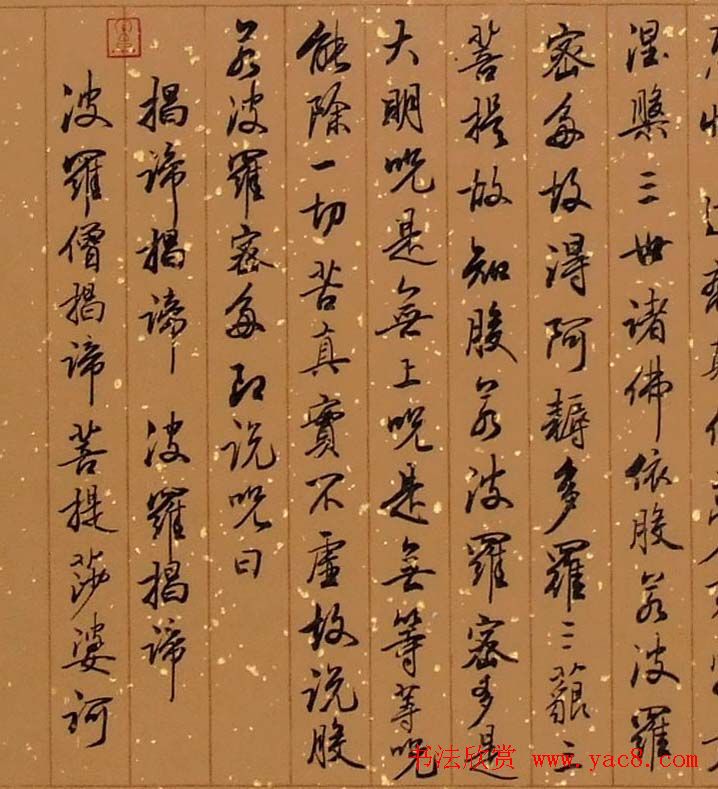 涅槃三世諸佛依般若波羅
密多故得阿耨多羅三藐三
菩提故知般若波羅密多是
大明呪是無上呪是無等等呪
能除一切苦真實不虛故說般
若波羅密多即說呪曰
揭諦揭諦 波羅揭諦
波羅僧揭諦菩提莎婆訶
书法欣赏 www.yac8.com